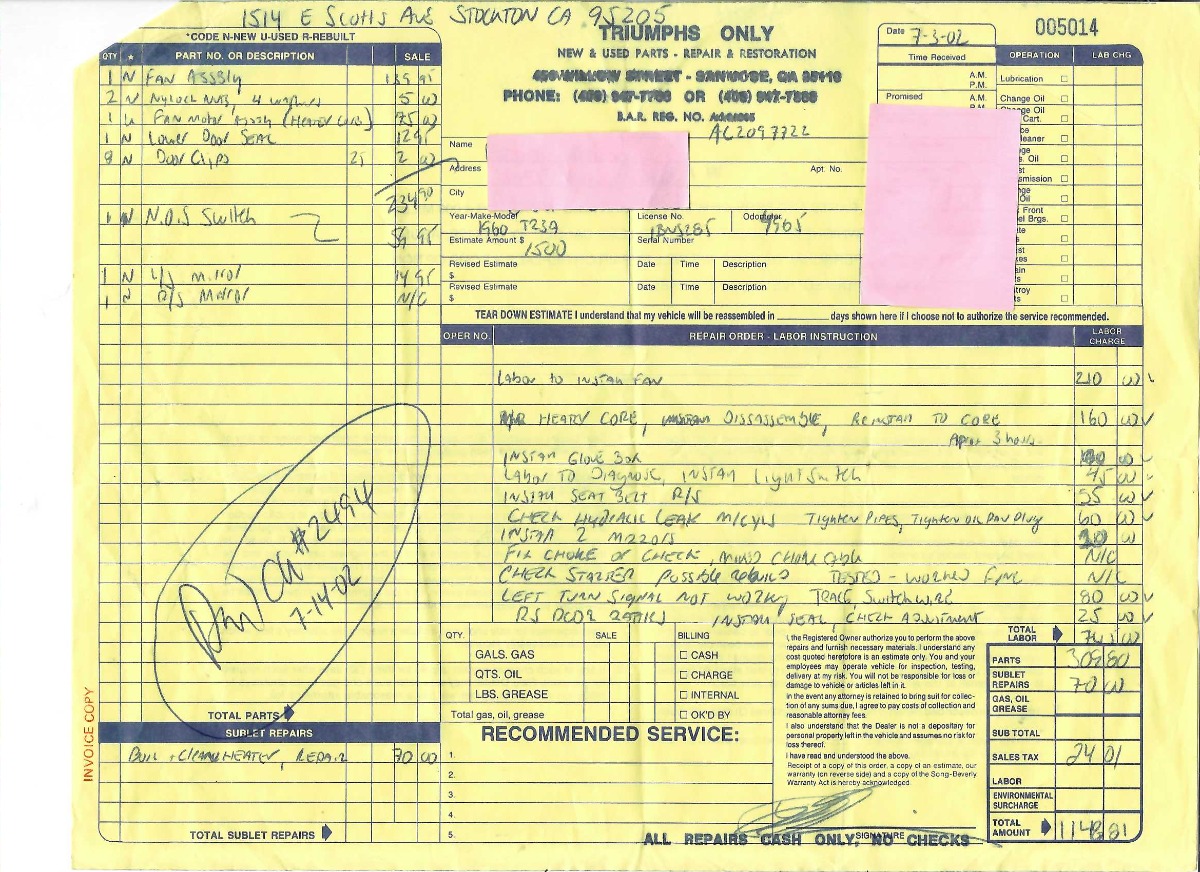 1514 E Scotts Ave Stockton CA 95205
*CODE N-NEW U-USED R-REBUILT
TRIUMPHS ONLY
NEW & USED PARTS - REPAIR & RESTORATION
PHONE: OR
B.A.R. REG. NO.
AC2097722
Date 7-3-02
005014
Time Received
A.M.
P.M.
Promised A.M.
OPERATION LAB CHG
Lubrication
Change Oil
QTY * PART NO. OR DESCRIPTION SALE
1 N FAN ASSBLY 139 95
2 N Nylock Nuts, 4 washers 5 00
1 U FAN MOTOR ASSY (HEATER CORE) 75 00
1 N Lower Door SEAL 12 95
8 N Door Clips 25 2 00
234 90
1 N N.O.S Switch 59 95
1 N L/S Mirror 14 95
1 N R/S Mirror N/C
Name
Address Apt. No.
City
Year-Make-Model 1960 TR3A
License No.
Odometer 9965
Estimate Amount $ 1500
Serial Number
Revised Estimate $ Date Time Description
Revised Estimate $ Date Time Description
TEAR DOWN ESTIMATE I understand that my vehicle will be reassembled in ________ days shown here if I choose not to authorize the service recommended.
OPER NO. REPAIR ORDER - LABOR INSTRUCTION LABOR CHARGE
Labor to INSTALL FAN 210 00
HEATER CORE, DISSASSEMBLE, REINSTALL TO CORE 160 00
Aprox 3 hours
INSTALL GLOVE BOX 00
LABOR TO DIAGNOSE, INSTALL Light Switch 45 00
INSTALL SEAT BELT R/S 55 00
CHECK HYDRALIC LEAK M/CYLS Tighten PIPES, Tighten OIL PAN Plug 60 00
INSTALL 2 MIRRORS 00
FIX CHOKE OR CHECK, N/C
CHECK STARTER possible rebuild TESTED - WORKED FINE N/C
LEFT TURN SIGNAL NOT WORKING TRACE, Switch wire 80 00
RS DOOR RATTLES INSTALL SEAL, CHECK ADJUSTMENT 25 00
#2494
7-14-02
TOTAL PARTS
SUBLET REPAIRS
Boil + Clean HEATER, REPAIR 70 00
TOTAL SUBLET REPAIRS
INVOICE COPY
QTY. SALE
GALS. GAS
QTS. OIL
LBS. GREASE
Total gas, oil, grease
BILLING
CASH
CHARGE
INTERNAL
OK'D BY
RECOMMENDED SERVICE:
1.
2.
3.
4.
5.
I, the Registered Owner authorize you to perform the above
repairs and furnish necessary materials. I understand any
cost quoted heretofore is an estimate only. You and your
employees may operate vehicle for inspection, testing,
delivery at my risk. You will not be responsible for loss or
damage to vehicle or articles left in it.
In the event any attorney is retained to bring suit for collec-
tion of any sums due, I agree to pay costs of collection and
reasonable attorney fees.
I also understand that the Dealer is not a depository for
personal property left in the vehicle and assumes no risk for
loss thereof.
I have read and understood the above.
Receipt of a copy of this order, a copy of an estimate, our
warranty (on reverse side) and a copy of the Song-Beverly
Warranty Act is hereby acknowledged.
SIGNATURE
ALL REPAIRS CASH ONLY, NO CHECKS
TOTAL LABOR
PARTS 309 80
SUBLET REPAIRS 70 00
GAS, OIL GREASE
SUB TOTAL
SALES TAX 24 01
LABOR
ENVIRONMENTAL SURCHARGE
TOTAL AMOUNT 1148 81